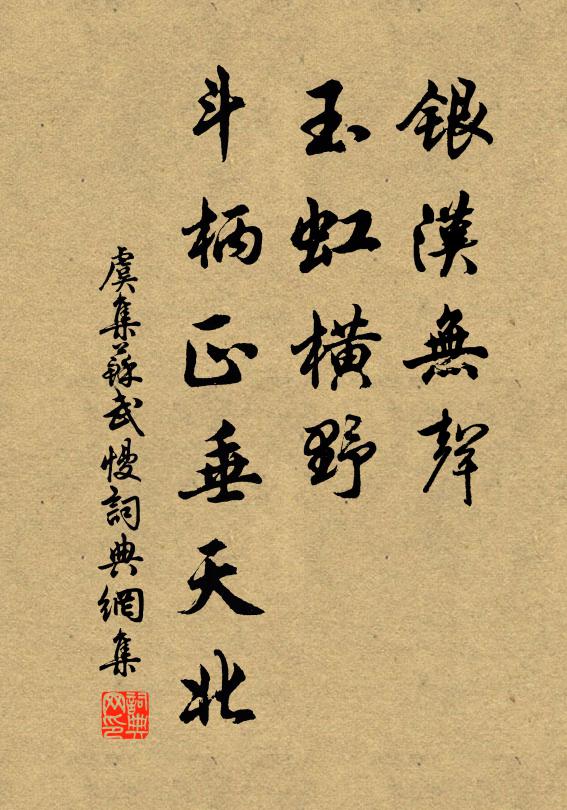 銀漢無聲
玉虹橫野
斗柄正垂天北
虞集蘇武慢詞典網集
詞典网印